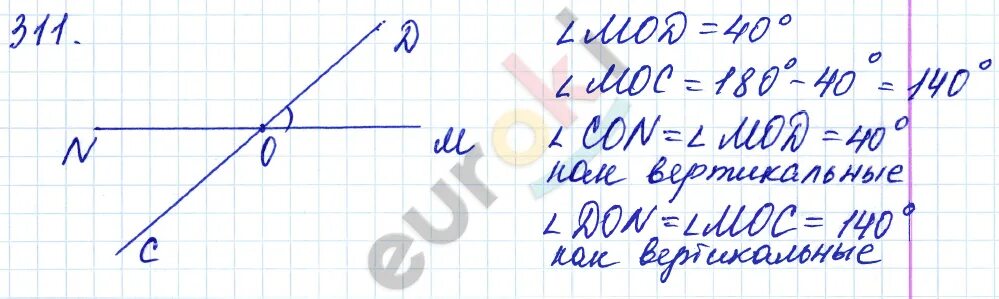 311.
D
N
O
M
C
∠MOD = 40°
∠MOC = 180° - 40° = 140°
∠CON = ∠MOD = 40°
как вертикальные
∠DON = ∠MOC = 140°
как вертикальные
euroki